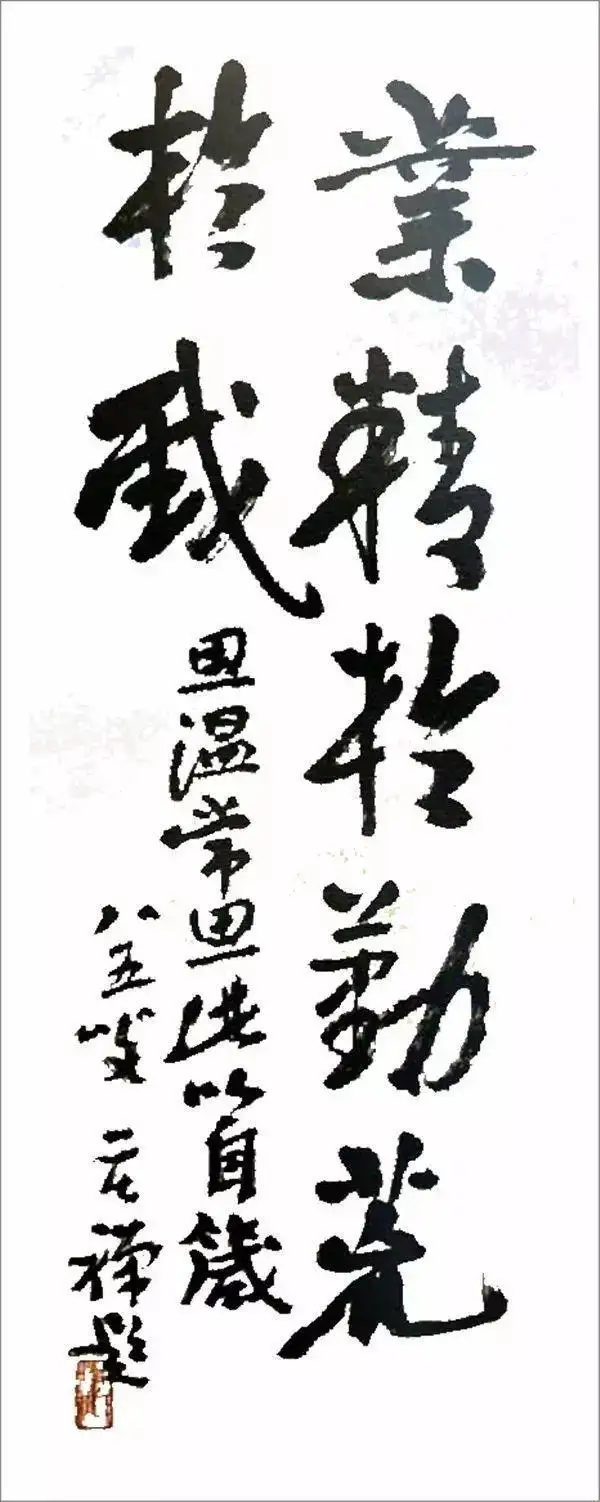 業精於勤荒
於戲
思温常思以自箴
八五叟 苦禅題